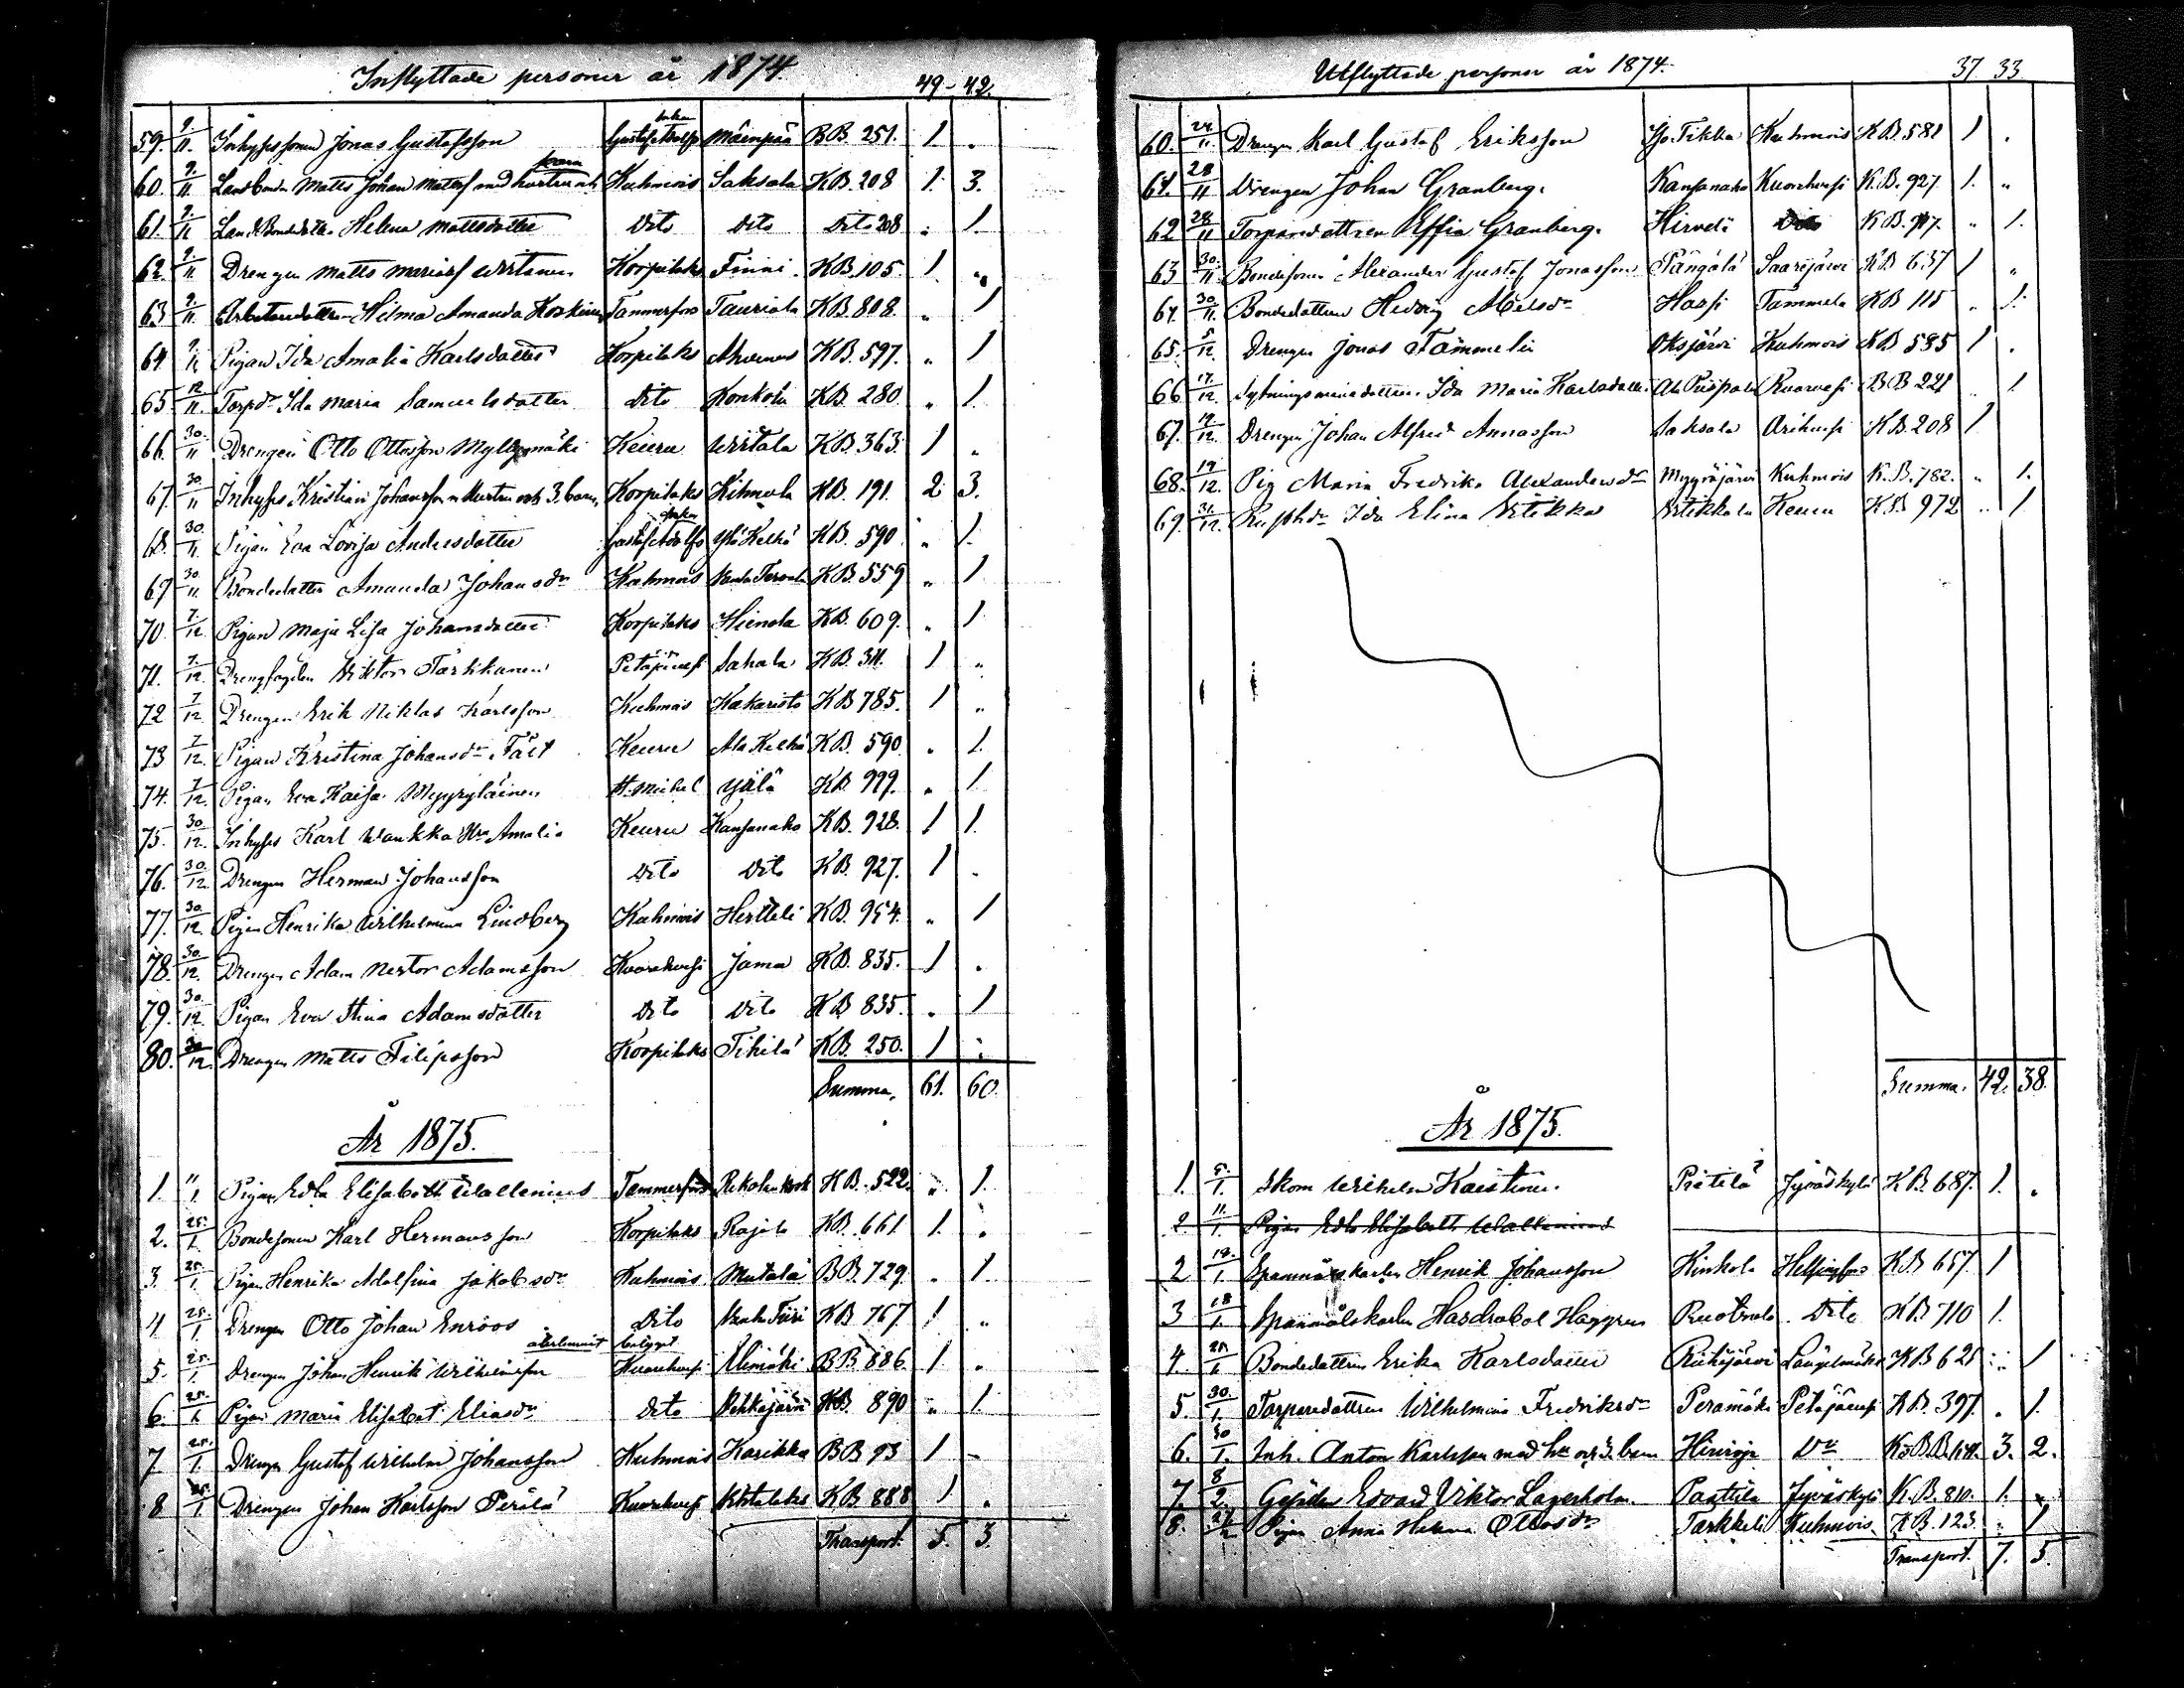 Inflyttade personer år 1874.
49 - 42.
59. 9/11. Inhysessonen Jonas Gustafsson Gustaf Adolfs Mäenpää BB. 251. 1. .
60. 9/11 Landbonden Matts Johan Mattsson med hustru och Kuhmois Saksala KB. 208 1. 3.
61. 9/11 Helena Mattsdotter Dito Dito Dito 208 " 1
62. 9/11. Drengen Matts Wirtanen Korpilaks Finni KB. 105. 1 "
63 9/11. Hilma Amanda Koskinen Tammerfors Tauriala KB. 808. " 1
64 9/11 Pigan Ida Amalia Karlsdotter Korpilaks Ahvenus KB. 597. " 1
65. 12/11. Torpd:r Ida Maria Samuelsdotter Dito Konkola KB. 280. " 1.
66. 30/11 Drengen Otto Ottosson Myllymäki Keuru Wirtala KB. 363. 1 "
67. 30/11 Inhyses Kristian Johansson m hustru och 3. barn, Korpilaks Hihnola KB. 191. 2 3.
68. 30/11. Pigan Eva Lovisa Andersdotter Gustaf Adolfs Ylä Kelhä KB. 590. " 1.
67 30/11. Bondedotter Amanda Johansdr Kuhmois KB. 559 " 1
70. 7/12. Pigan Maja Lisa Johansdotter Korpilaks Hienola KB. 609. " 1
71. 7/12. Wiktor Tarhkanen Petäjävesi Sahala KB. 311. 1 "
72 7/12 Drengen Erik Niklas Karlsson Kuhmois Hakaristo KB 785. 1 "
73 7/12. Pigan Kristina Johansdr Fält Keuru Ala Kelhä KB. 590 " 1.
74. 7/12. Pigan Eva Kaisa Myyryläinen St. Michel Yjälä KB. 999. " 1
75. 30/12. Inhyses Karl Waukka Hu Amalia Keuru Kansanaho KB. 928. 1 1.
76. 30/12. Drengen Herman Johansson Dito Dito KB. 927. 1 .
77. 30/12. Pigan Henrika Wilhelmina Lindberg Kuhmois Hertteli KB. 954. " 1
78. 30/12. Drengen Adam Nestor Adamsson Kuorehvesi Jama KB. 835. 1 .
79. 30/12. Pigan Eva Stina Adamsdotter Dito Dito KB 835. " 1
80. 30/12. Drengen Matts Filipsson Korpilaks Tihilä KB. 250. 1 "
Summa, 61. 60.
År 1875.
1. "/1. Pigan Edla Elisabeth Wallenius Tammerfors KB. 522. " 1.
2. 25./1. Bondesonen Karl Hermansson Korpilaks Rajala KB. 661 1. "
3. 25./1. Pigan Henrika Adolfina Jakobsdr Kuhmois Mutala BB. 729. " 1
4. 25./1. Drengen Otto Johan Enroos Dito KB 767 1 "
återlemnat betyget
5. 25./1. Drengen Johan Henrik Wilhelmsson Kuorehvesi Alimäki BB 886. 1 "
6. 25./1. Pigan Maria Elisabet Eliasdr Dito Pehkäjärvi KB. 890 " 1
7 25./1. Drengen Gustaf Wilhelm Johansson Kuhmois Karikka BB 93 1 -
8 25./1. Drengen Johan Karlsson Perälä Kuorehvesi KB 888 1 "
Transport. 5. 3.
Utflyttade personer år 1874.
37 33
60. 24./11. Drengen Karl Gustaf Eriksson Tikka Kuhmois KB 581 1 .
61. 28/11 Drengen Johan Granberg. Kansanaho Kuorehvesi KB. 927. 1. "
62 28/11 Torparedottren Effia Granberg. Hirvelä Dito KB. " 1.
63 30./11 Bondesonen Alexander Gustaf Jonasson Pängälä Saarijärvi KB 637 1 "
64. 30/11. Bondedottren Hedvig Abelsdr Hassi Tammela KB 115 " 1.
65. 5/12. Drengen Jonas Tammelin Oksjärvi Kuhmois KB 585 1 .
66 17./12. Sytningsmansdottren Ida Maria Karlsdotter Ala Puispala Ruovesi BB 221 " 1
67. 19/12. Drengen Johan Alfred Annasson Saksala KB. 208 1
68. 19/12. Pig Maria Fredrika Alexandersdr Myyräjärvi Kuhmois K.B. 782. " 1.
69. 31/12. Ida Elina Wtikka Wtikkala Keuru KB 972 " 1
Summa. 42. 38.
År 1875.
1. 5./1. Skom Wilhelm Kaistinen. Piètilä Jyväskylä KB. 687. 1. "
2 11./1. Pigan Edla Elisabeth Wallenius
2 12./1 Spannmålskarlen Henrik Johansson Kinkola Helsingfors KB 657 1
3 18/1. Spannmålskarlen Hasdrabol Haggren Ruotsula Dito KB 710 1.
4. 25/1 Bondedottren Erika Karlsdotter Riihijärvi Längelmäki KB 621 " 1
5. 30./1. Torparedottren Wilhelmina Fredriksdr Perämäki Petäjävesi KB. 397. " 1.
6. 30/1. Inh. Anton Karlsson med hu och 3. barn Hirvioja Do 3. 2.
7. 8/2. Gesällen Edvard Viktor Lagerholm. Panttila Jyväskylä K.B. 810. 1. "
8. 27/2 Pigan Anna Helena Ottosdr Tarkkeli Kuhmois KB. 123. " 1
Transport. 7. 5.